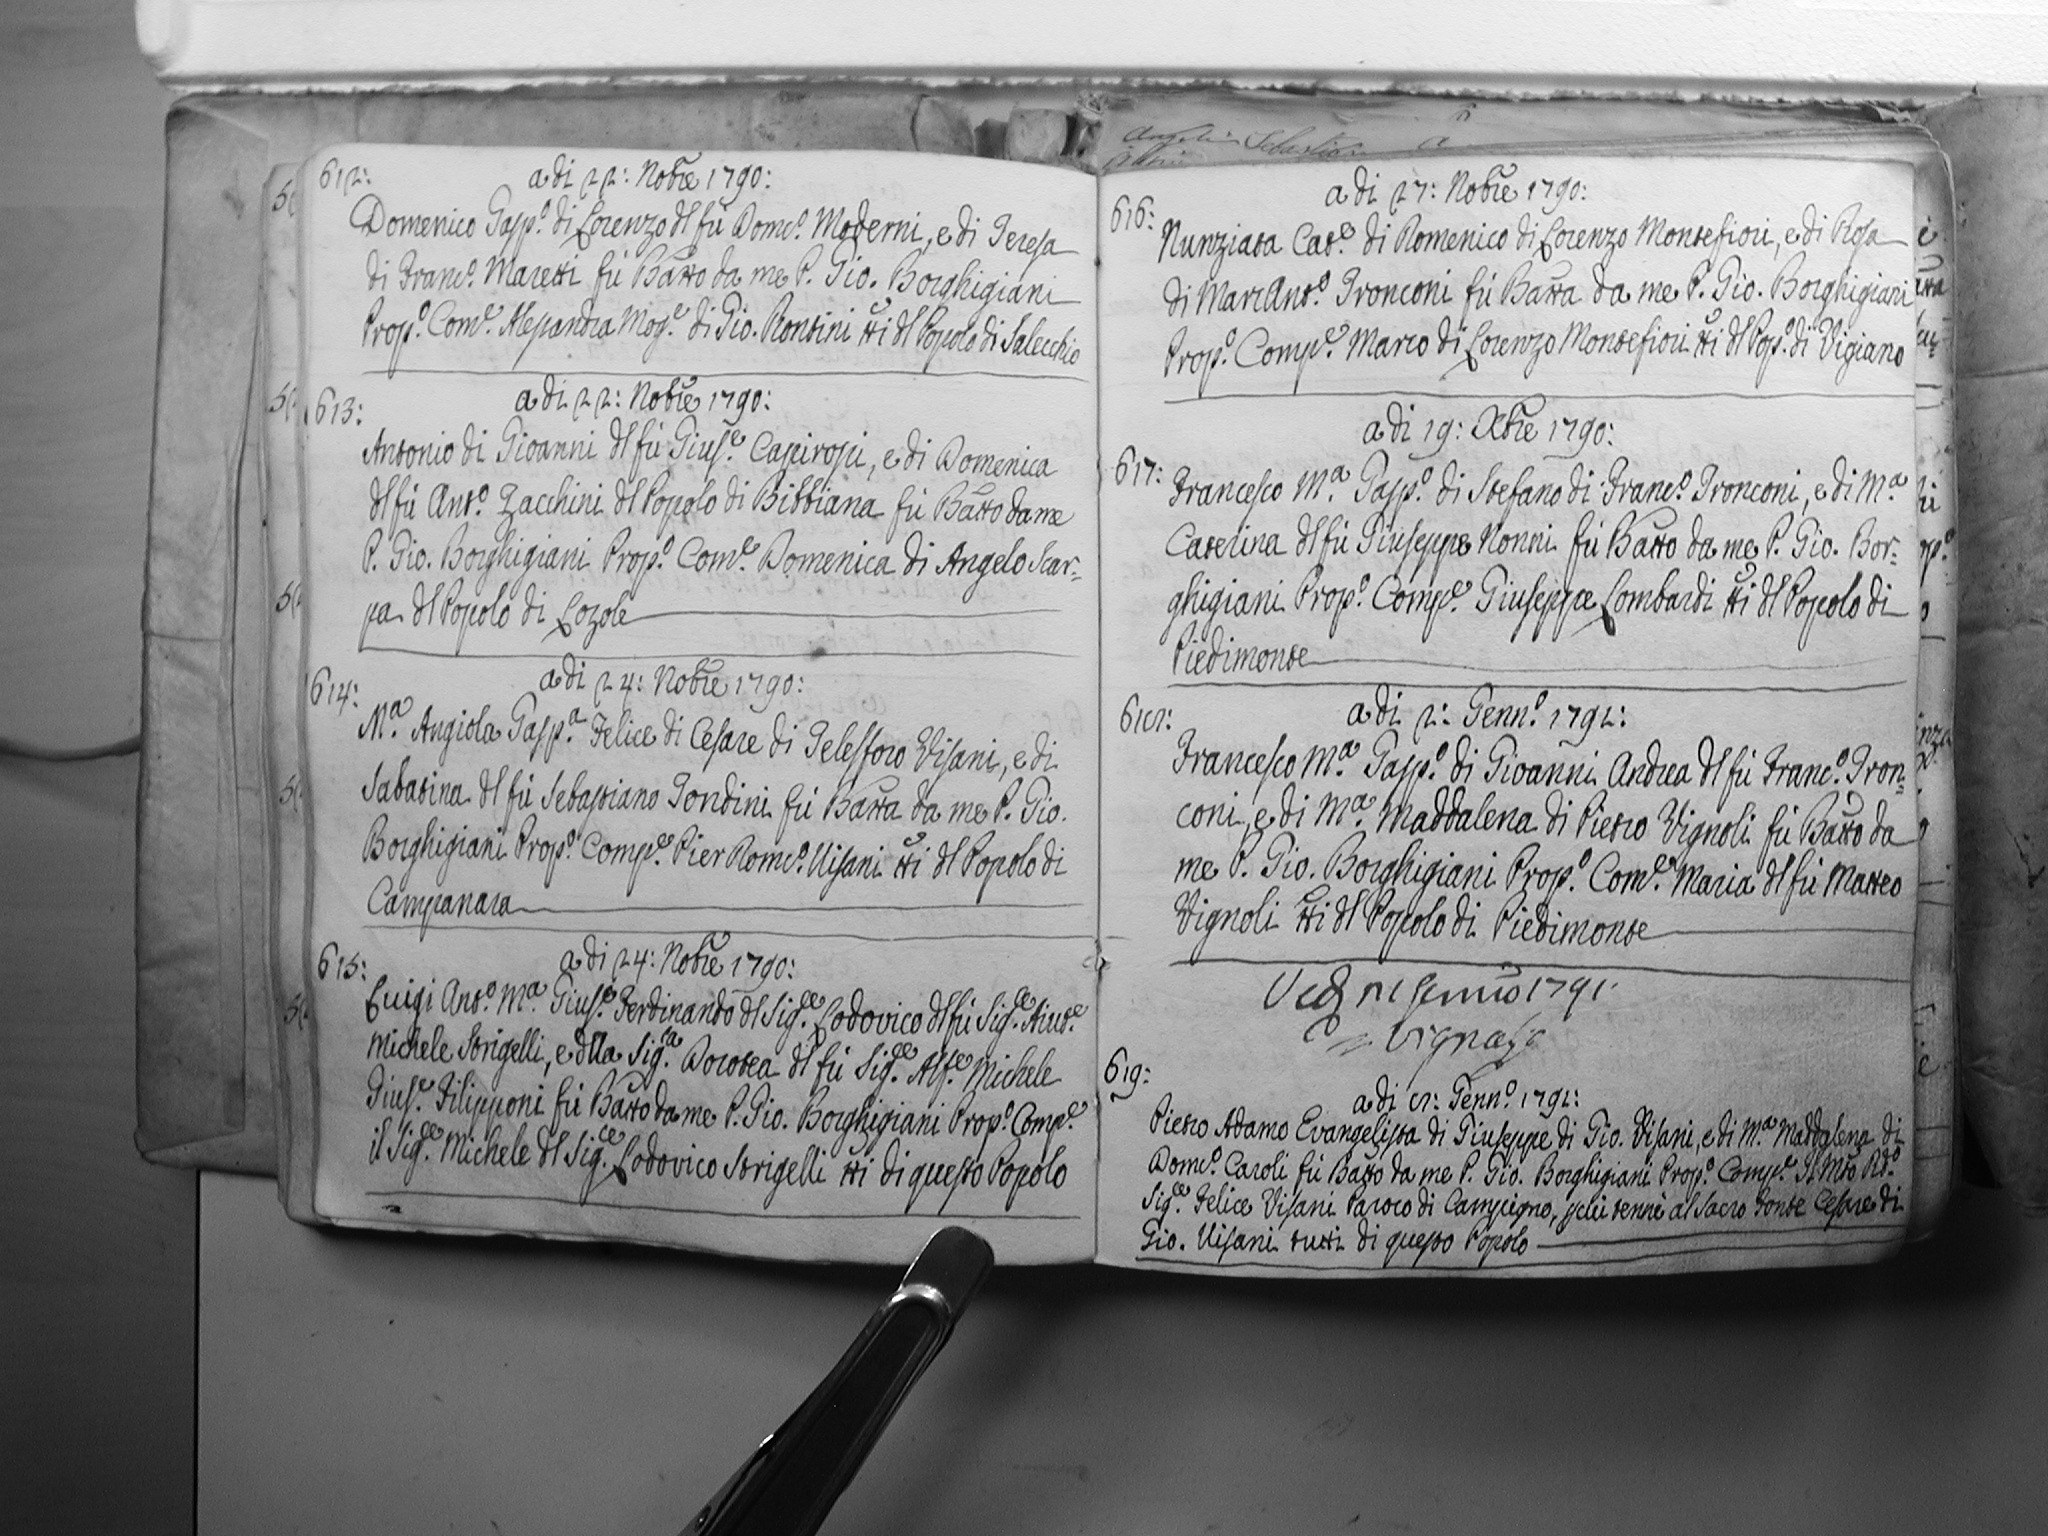 612:
a di 22: Nobre 1790:
Domenico Gasp.o di Lorenzo dl fù Dom.co Moderni, e di Teresa
di Franc.o Maretti fù Batto da me P. Gio. Borghigiani
Prop.o Com.e Alessandra Mog.e di Gio. Rontini tti dl Popolo di Salecchio
613:
a di 22: Nobre 1790:
Antonio di Giovanni dl fù Gius.e Capirossi, e di Domenica
dl fù Ant.o Zacchini dl Popolo di Bibbiana fù Batto da me
P. Gio. Borghigiani Prop.o Com.e Domenica di Angelo Scar-
pa dl Popolo di Lozole
614:
a di 24: Nobre 1790:
M.a Angiola Gasp.a Felice di Cesare di Telesforo Visani, e di
Sabatina dl fù Sebastiano Tondini fù Batta da me P. Gio.
Borghigiani Prop.o Comp.e Pier Dom.co Visani tti dl Popolo di
Campanara
615:
a di 24: Nobre 1790:
Luigi Ant.o M.a Gius.e Ferdinando dl Sig.e Lodovico dl fù Sig.e
Michele Strigelli, e dlla Sig.a Dorotea dl fù Sig.e Alf.e Michele
Gius.e Filipponi fù Batto da me P. Gio. Borghigiani Prop.o Comp.e
il Sig.e Michele dl Sig.e Lodovico Strigelli tti di questo Popolo
616:
a di 27: Nobre 1790:
Nunziata Cat.a di Domenico di Lorenzo Montefiori, e di Rosa
di Marc Ant.o Tronconi fù Batta da me P. Gio. Borghigiani
Prop.o Comp.e Marco di Lorenzo Montefiori tti dl Pop.o di Vigiano
a di 19: Xbre 1790:
617:
Francesco M.a Gasp.o di Stefano di Franc.o Tronconi, e di M.a
Caterina dl fù Giuseppe Nonni fù Batto da me P. Gio. Bor-
ghigiani Prop.o Comp.e Giuseppe Lombardi tti dl Popolo di
Piedimonte
618:
a di 2: Genn.o 1791:
Francesco M.a Gasp.o di Giovanni Andrea dl fù Franc.o Tron-
coni, e di M.a Maddalena di Pietro Vignoli fù Batto da
me P. Gio. Borghigiani Prop.o Com.e Maria dl fù Matteo
Vignoli tti dl Popolo di Piedimonte
1791
619:
a di 8: Genn.o 1791:
Pietro Adamo Evangelista di Giuseppe di Gio. Visani, e di M.a Maddalena di
Dom.co Caroli fù Batto da me P. Gio. Borghigiani Prop.o Comp.e Il Mto Rd.o
Sig.e Felice Visani Paroco di Campigno, p lui tenne al Sacro Fonte Cesare di
Gio. Visani tutti di questo Popolo